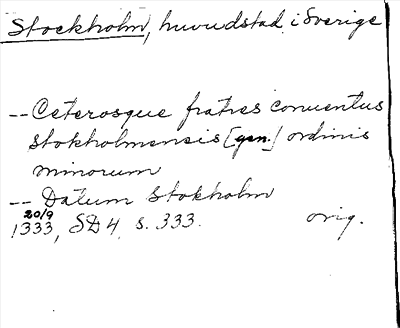 Stockholm, huvudstad i Sverige
-- Ceterosque fratres conuentus
stokholmensis [gen.] ordinis
minorum
-- Datum Stokholm
20/9
1333, SD 4 s. 333. orig.